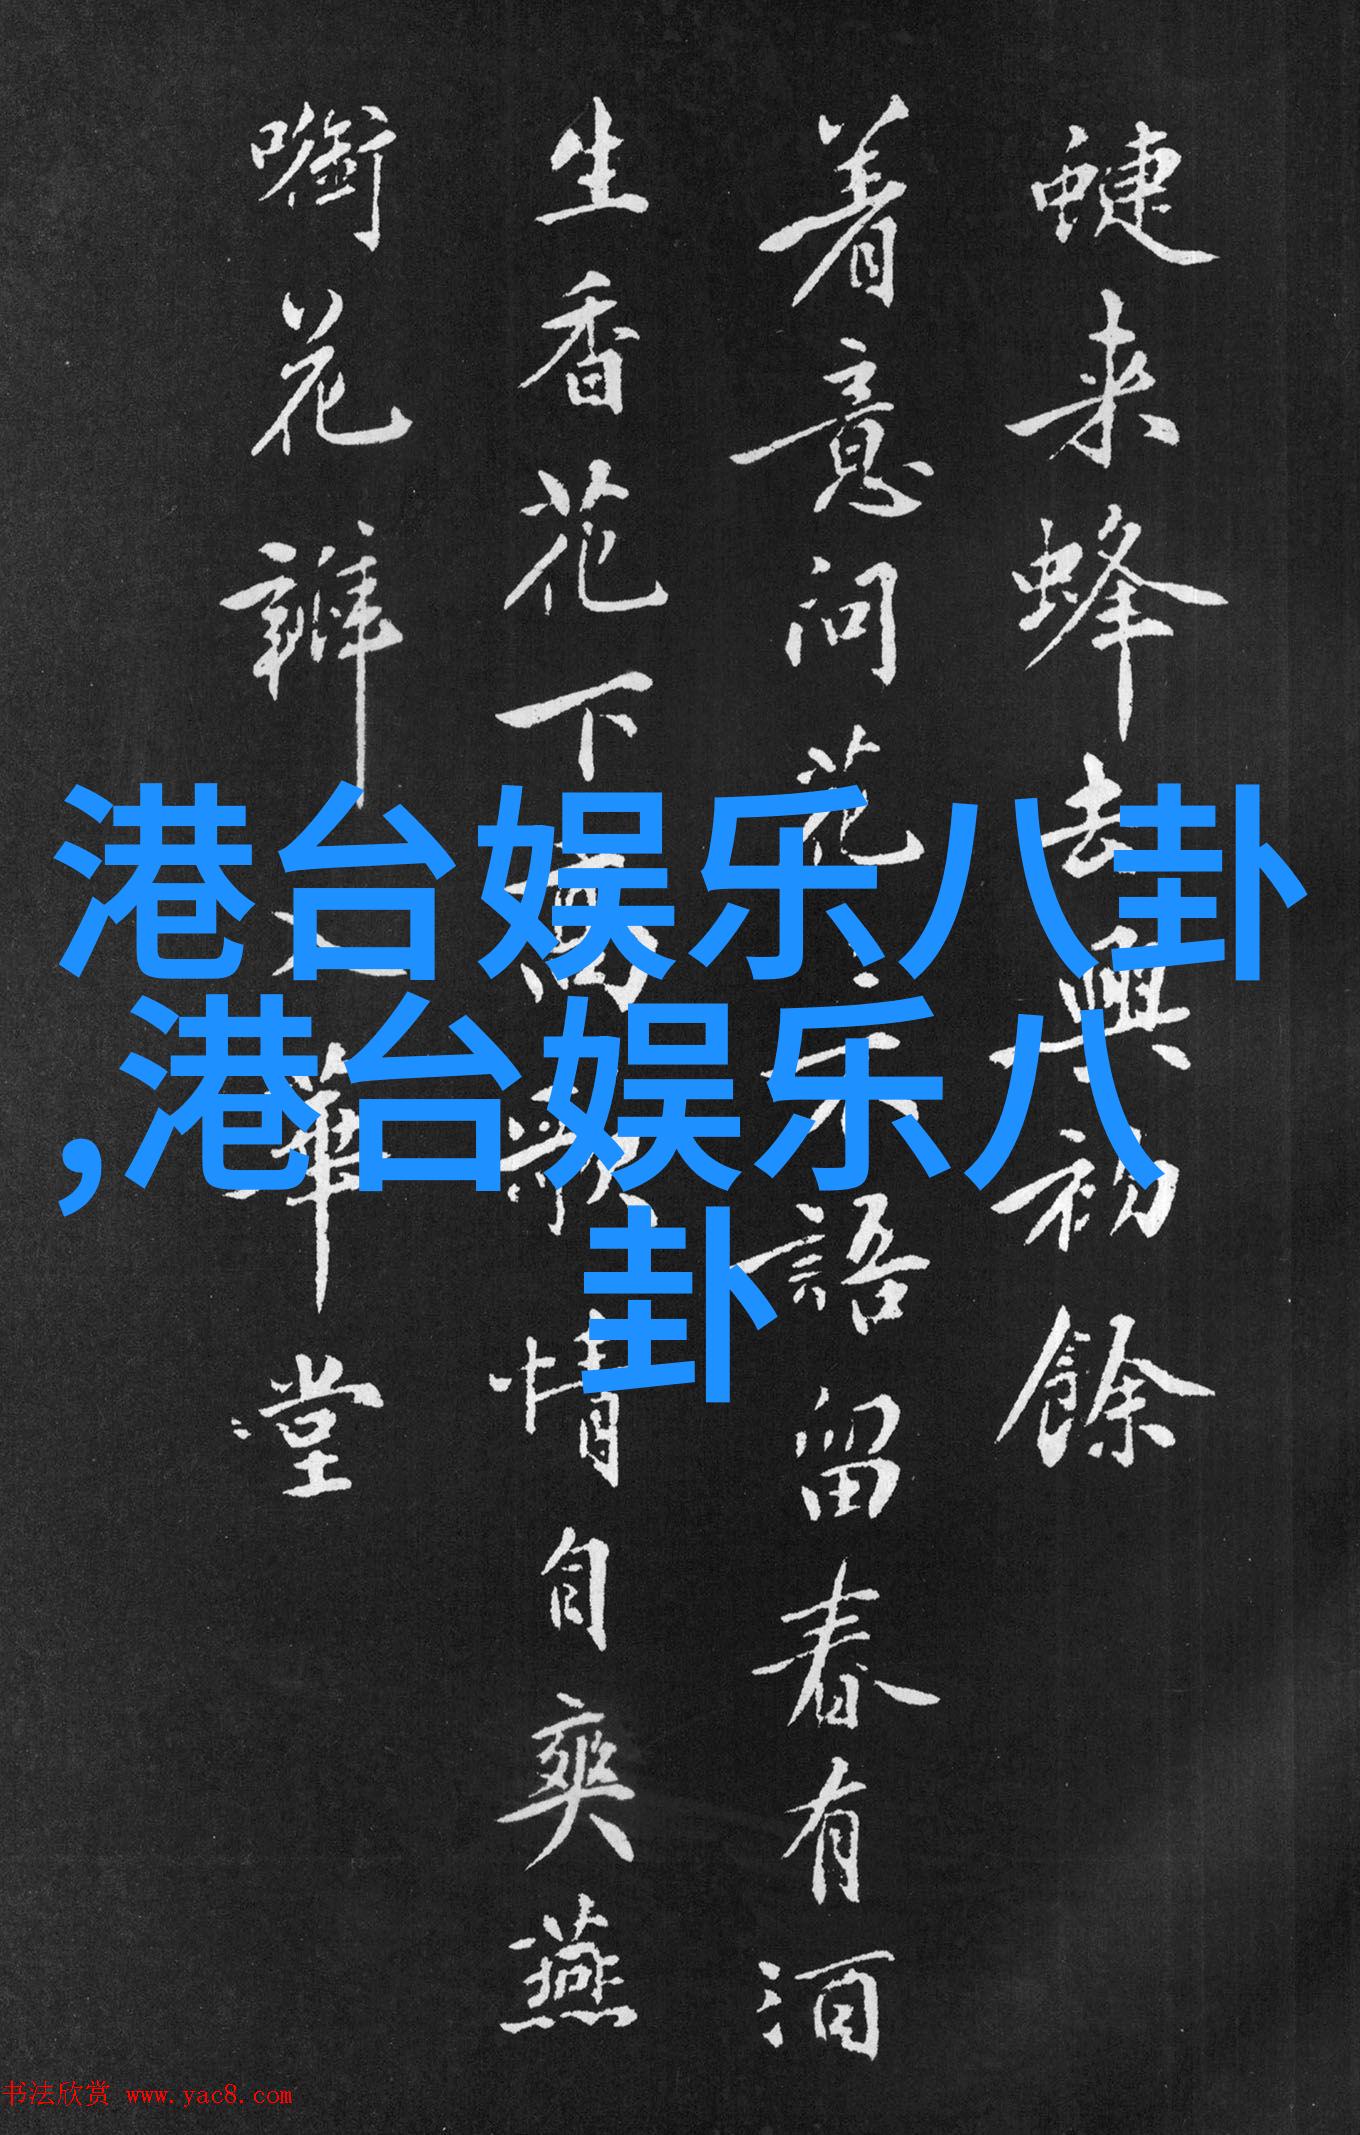 蜨来蜂去興初餘
着意问花花不語留春有酒
生香花下高歌情自爽燕
啣花瓣入華堂
港台娱乐八卦
,港台娱乐八
卦
书法欣赏 www.yac8.com